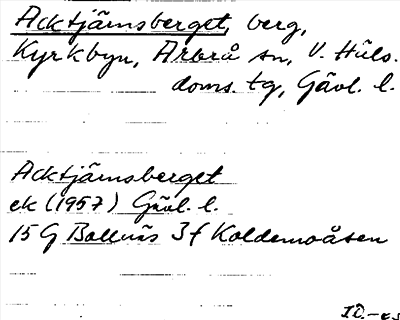 Acktjärnsberget, berg,
Kyrkbyn, Arbrå sn, V. Häls.
doms. tg, Gävl. l.
Acktjärnsberget
ek (1957) Gävl. l.
15 G Bollnäs 3f Koldemoåsen